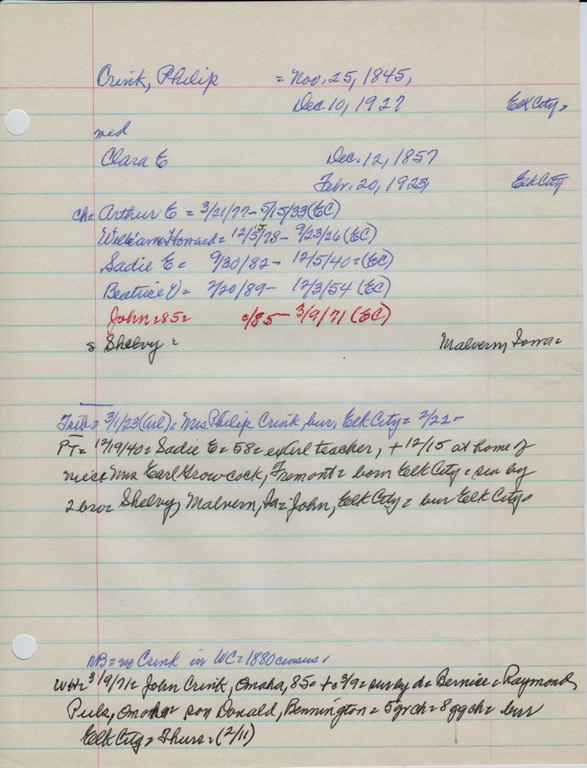 Crink, Philip = Nov. 25, 1845,
Dec 10, 1927 Elk City =
med
Clara E Dec. 12, 1857
Febr. 20, 1923 Elk City
ch = Arthur E = 3/21/77 - 5/15/33 (EC)
William Howard = 12/5/78 - 9/23/26 (EC)
Sadie E = 9/30/82 - 12/5/40 = (EC)
Beatrice V = 2/20/89 - 12/3/54 (EC)
John = 85 = c/85 - 3/9/71 (EC)
s Shelvy = Malvern, Iowa =
Trib = 3/1/23 (Arl) = Mrs Philip Crink, bur, Elk City = 2/22 =
PT = 12/19/40 = Sadie E = 58 = ex Arl teacher, + 12/15 at home of
niece Mrs Earl Growcock, Fremont = born Elk City = sur by
2 bro = Shelvy, Malvern, Ia = John, Elk City = bur Elk City =
NB = no Crink in WC = 1880 census.
WH = 3/9/71 = John Crink, Omaha, 85 = + c 3/9 = sur by d = Bernice = Raymond
Puls, Omaha = son Donald, Bennington = 5 gr ch = 8 gg ch = bur
Elk City = Thurs = (2/11)